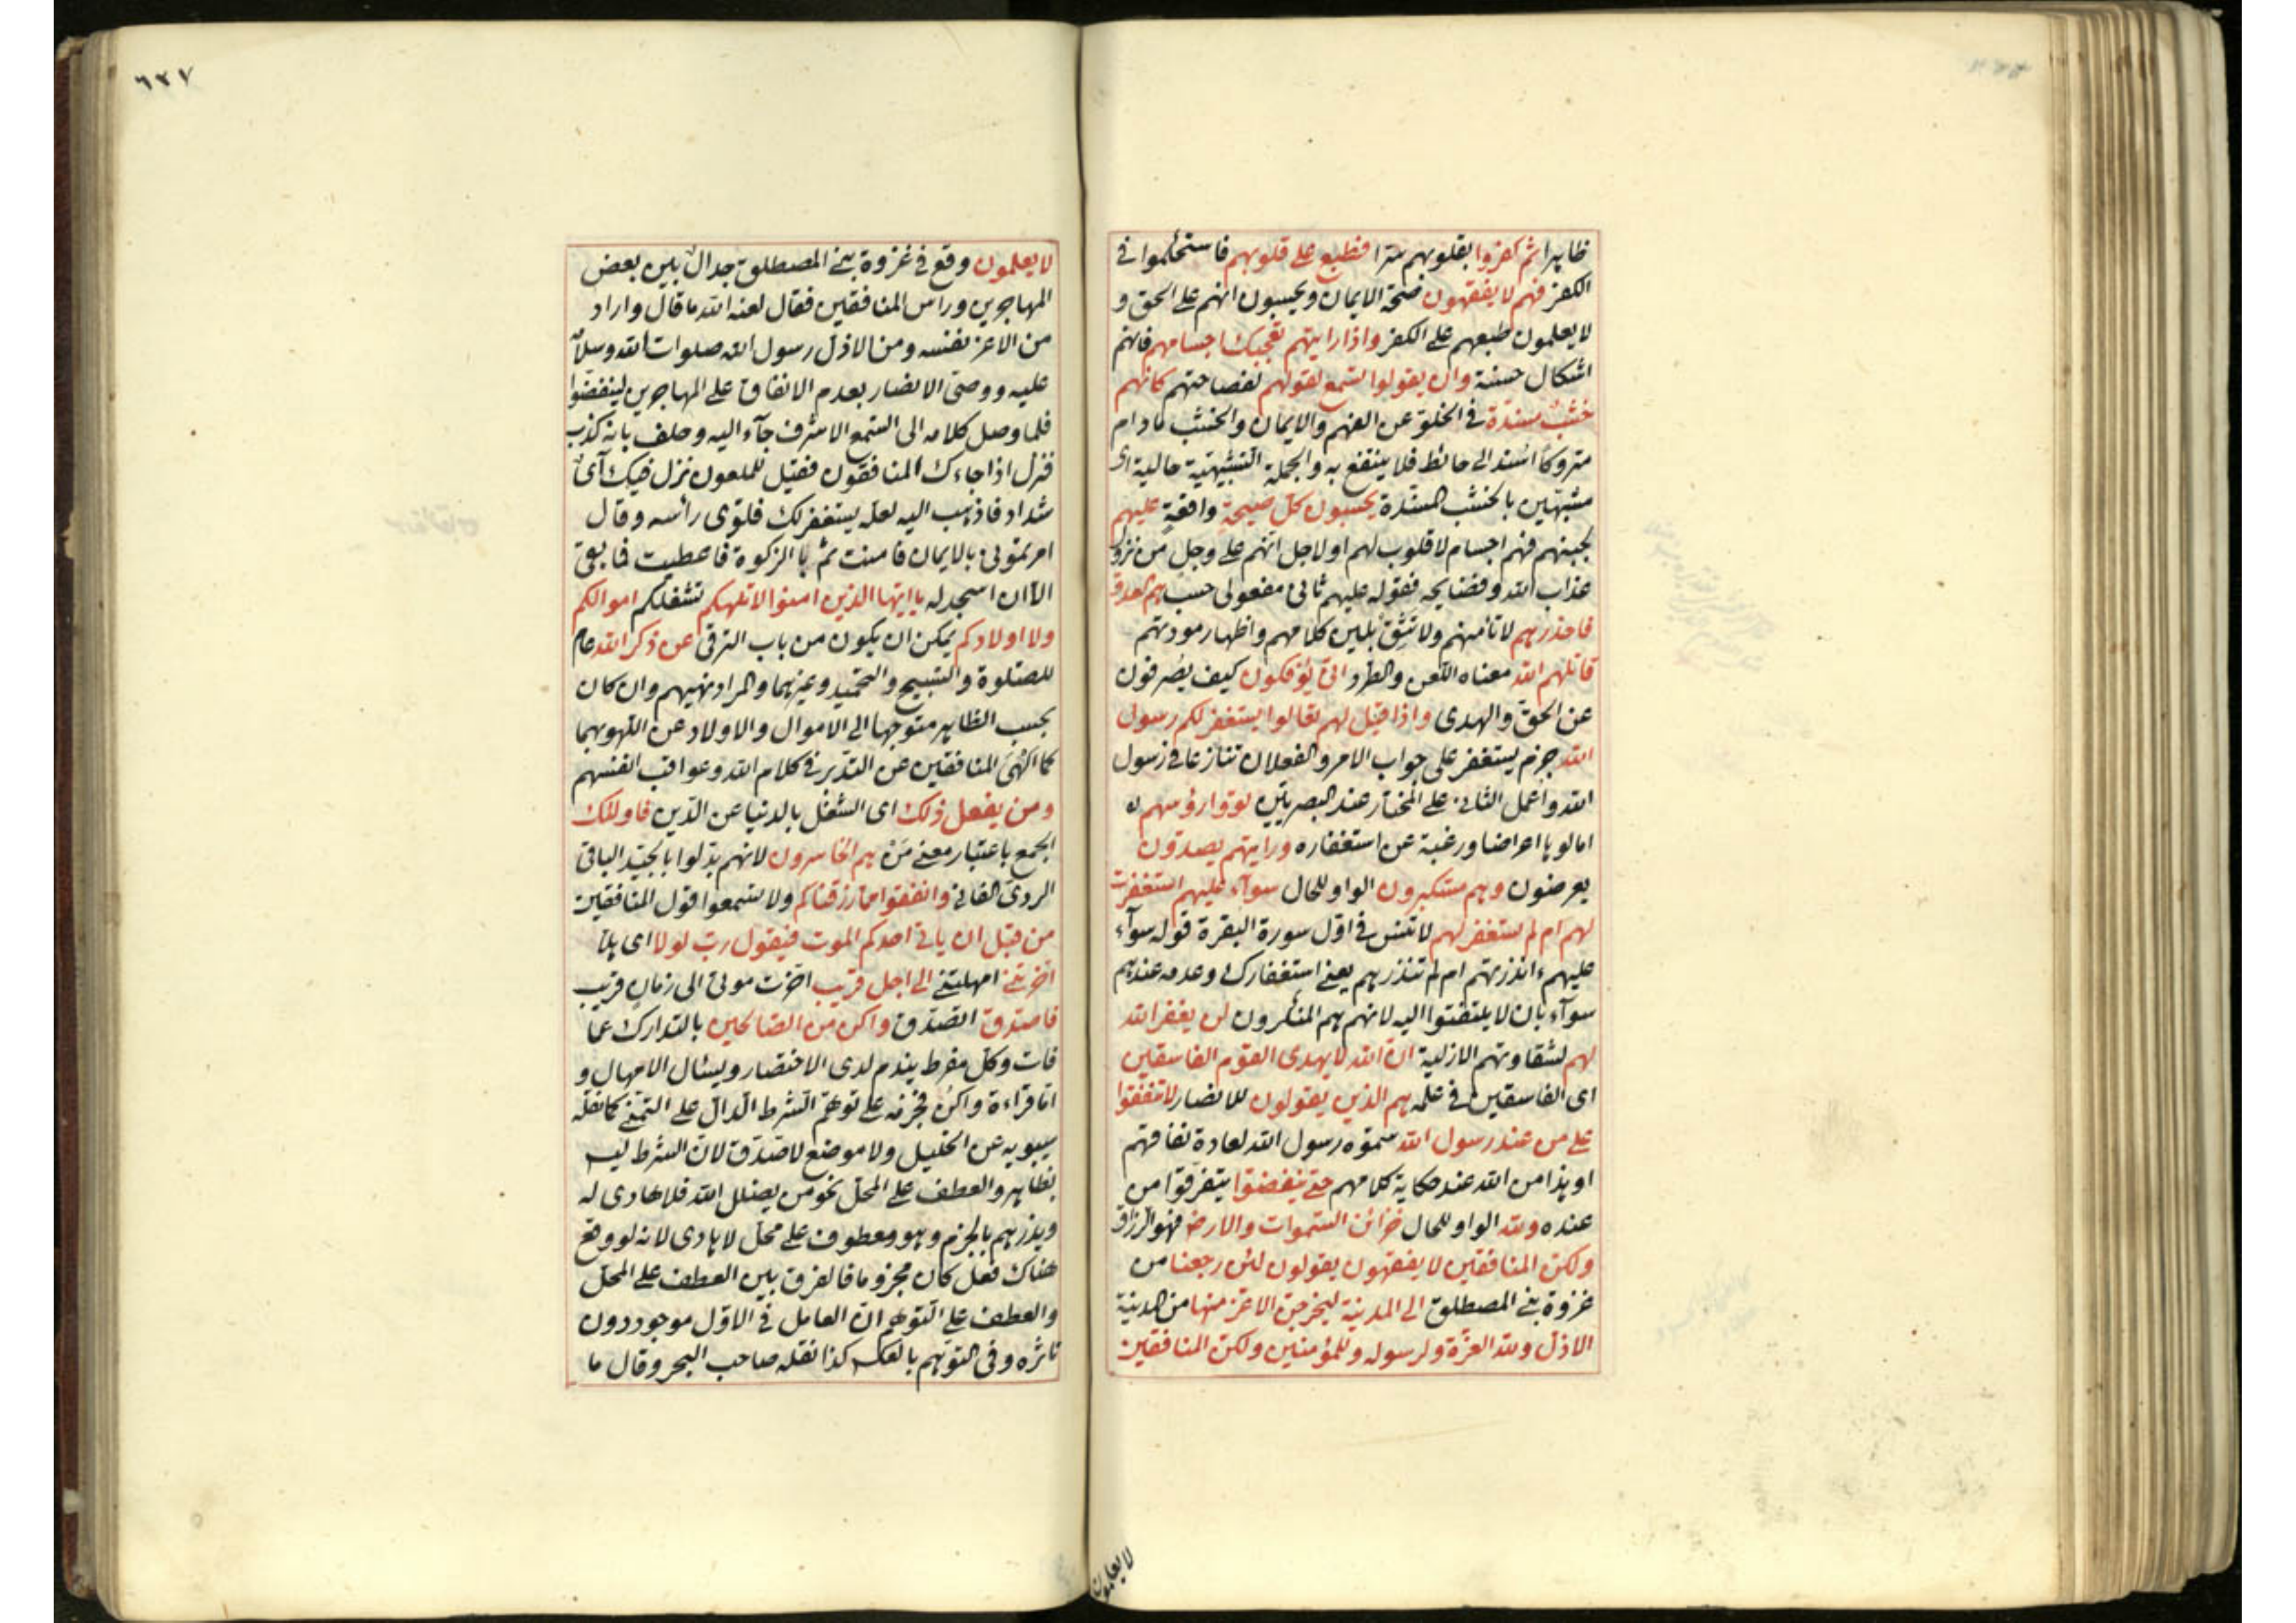 ظاهرا ثم كفروا بقلوبهم سترا فطبع على قلوبهم فاستحكموا في
الكفر فهم لا يفقهون صحة الايمان ويحسبون انهم على الحق و
لا يعلمون طبعهم على الكفر واذا رايتهم تعجبك اجسامهم فانهم
اشكال حسنة وان يقولوا تسمع لقولهم لفصاحتهم كانهم
خشب مسندة في الخلو عن الفهم والايمان والخشب ما دام
متروكا اسند الى حائط فلا ينتفع به والجملة التشبيهية حالية اى
مشبهين بالخشب المسندة يحسبون كل صيحة واقعة عليهم
لجبنهم فهم اجسام لا قلوب لهم او لاجل انهم على وجل من نزول
عذاب الله وفضايحه فقوله عليهم ثانى مفعولى حسب هم العدو
فاحذرهم لا تامنهم ولا تثق بلين كلامهم واظهار مودتهم
قاتلهم الله معناه اللعن والطرد انى يؤفكون كيف يصرفون
عن الحق والهدى واذا قيل لهم تعالوا يستغفر لكم رسول
الله جزم يستغفر على جواب الامر والفعلان تنازعا في رسول
الله واعمل الثانى على المختار عند البصريين لووا رؤسهم
امالوها اعراضا ورغبة عن استغفاره ورايتهم يصدون
يعرضون وهم مستكبرون الواو للحال سوآء عليهم استغفرت
لهم ام لم تستغفر لهم لا تنس في اول سورة البقرة قوله سوآء
عليهم ءانذرتهم ام لم تنذرهم يعنى استغفارك وعدمه عندهم
سوآء بان لا يلتفتوا اليه لانهم هم المنكرون لن يغفر الله
لهم لشقاوتهم الازلية ان الله لا يهدى القوم الفاسقين
اى الفاسقين في علمه هم الذين يقولون للانصار لا تنفقوا
على من عند رسول الله سموه رسول الله لعادة نفاقهم
او هذا من الله عند حكاية كلامهم حتى ينفضوا يتفرقوا من
عنده ولله الواو للحال خزائن السموات والارض فهو الرزاق
ولكن المنافقين لا يفقهون يقولون لئن رجعنا من
غزوة بنى المصطلق الى المدينة ليخرجن الاعز منها من المدينة
الاذل ولله العزة ولرسوله وللمؤمنين ولكن المنافقين
لا يعلمون
٦٢٧
لا يعلمون وقع في غزوة بنى المصطلق جدال بين بعض
المهاجرين وراس المنافقين فقال لعنه الله ما قال واراد
من الاعز نفسه ومن الاذل رسول الله صلوات الله وسلامه
عليه ووصى الانصار بعدم الانفاق على المهاجرين لينفضوا
فلما وصل كلامه الى السمع الاشرف جآء اليه وحلف بانه كذب
فنزل اذا جاءك المنافقون فقيل للملعون نزل فيك آى
شداد فاذهب اليه لعله يستغفر لك فلوى رائسه وقال
امرتمونى بالايمان فامنت ثم بالزكوة فاعطيت فما بقى
الا ان اسجد له يا ايها الذين امنوا لا تلهكم تشغلكم اموالكم
ولا اولادكم يمكن ان يكون من باب الترقى عن ذكر الله عام
للصلوة والتسبيح والتحميد وغيرهما والمراد نهيهم وان كان
بحسب الظاهر متوجها الى الاموال والاولاد عن اللهو بهما
كما الهى المنافقين عن التدبر في كلام الله وعواقب انفسهم
ومن يفعل ذلك اى الشغل بالدنيا عن الدين فاولئك
الجمع باعتبار معنى من هم الخاسرون لانهم بدلوا بالجيد الباقى
الردى الفانى وانفقوا مما رزقناكم ولا تسمعوا قول المنافقين
من قبل ان ياتى احدكم الموت فيقول رب لولا اى هلا
اخرتنى امهلتنى الى اجل قريب اخرت موتى الى زمان قريب
فاصدق اتصدق واكن من الصالحين بالتدارك عما
فات وكل مفرط يندم لدى الاحتضار ويسئال الامهال و
اما قراءة واكن فجزمه على توهم الشرط الدال على التمنى كما نقله
سيبويه عن الخليل ولا موضع لاصدق لان الشرط ليس
بظاهر والعطف على المحل نحو من يضلل الله فلا هادى له
ويذرهم بالجزم وهو معطوف على محل لا هادى لانه لو وقع
هناك فعل كان مجزوما فالفرق بين العطف على المحل
والعطف على التوهم ان العامل في الاول موجود دون
تاثره وفى التوهم بالعكس كذا نقله صاحب البحر وقال ما